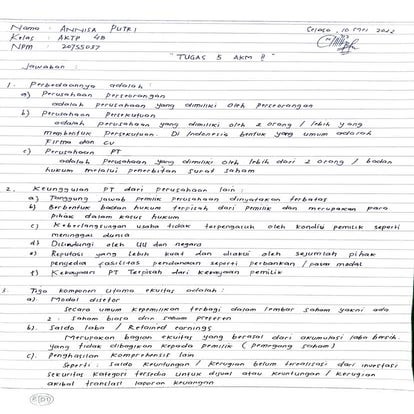 Nama : ANNISA PUTRI
Selasa, 10 Mei 2022
Kelas : AKTP 4B
NPM : 20755037
"TUGAS 5 AKM II"
Jawaban :
1. Perbedaannya adalah :
a) Perusahaan perseorangan
adalah perusahaan yang dimiliki oleh perseorangan
b) Perusahaan Persekutuan
adalah perusahaan yang dimiliki 2 orang / lebih yang
membentuk persekutuan. Di Indonesia bentuk yang umum adalah
Firma dan CV
c) Perusahaan PT
adalah Perusahaan yang dimiliki oleh lebih dari 2 orang / badan
hukum melalui penerbitan surat saham
2. Keunggulan PT dari perusahaan lain :
a) Tanggung jawab pemilik perusahaan dinyatakan terbatas
b) Berbentuk badan hukum terpisah dari pemilik dan merupakan para
pihak dalam kasus hukum
c) Keberlangsungan usaha tidak terpengaruh oleh kondisi pemilik seperti
meninggal dunia
d) Dilindungi oleh UU dan negara
e) Reputasi yang lebih kuat dan diakui oleh sejumlah pihak
penyedia fasilitas pendanaan seperti perbankan / pasar modal
f) Kekayaan PT Terpisah dari kekayaan pemilik
3. Tiga komponen utama ekuitas adalah :
a) Modal disetor
Secara umum kepemilikan terbagi dalam lembar saham yakni ada
2 : Saham biasa dan saham preferen
b) Saldo laba / Retained earnings
Merupakan bagian ekuitas yang berasal dari akumulasi laba bersih
yang tidak dibagikan kepada pemilik (pemegang saham)
c) Penghasilan Komprehensif lain
Seperti : Saldo keuntungan / kerugian belum terealisasi dari investasi
sekuritas kategori tersedia untuk dijual atau keuntungan / kerugian
akibat translasi laporan keuangan